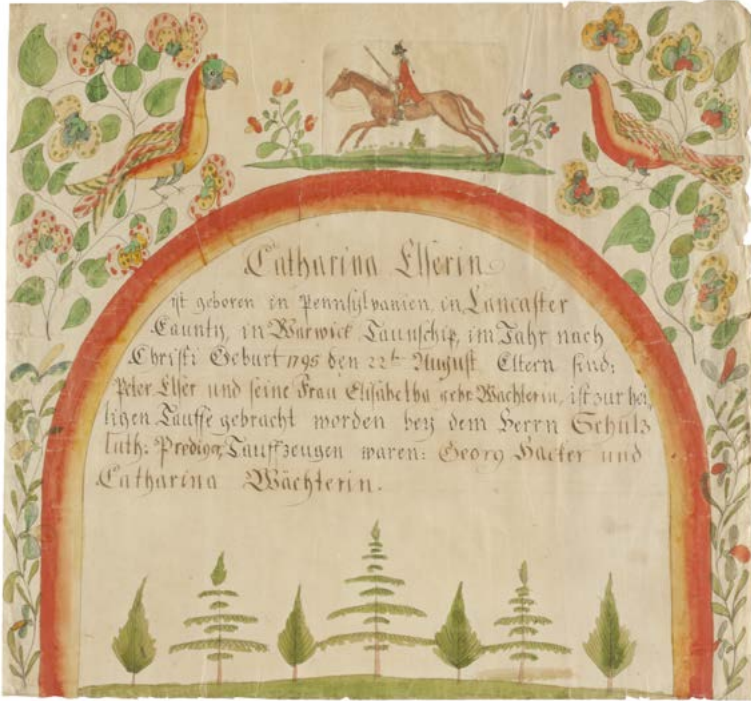 Catharina Elserin
ist geboren in Pennsylvanien, in Lancaster
Caunty, in Warwick Taunschip, im Jahr nach
Christi Geburt 1795 den 22t August Eltern sind:
Peter Elser und seine Frau Elisabetha gebr Wächterin, ist zur hei
ligen Tauffe gebracht worden bey dem Herrn Schulz
luth: Prediger, Tauffzeugen waren: Georg Hacker und
Catharina Wächterin.